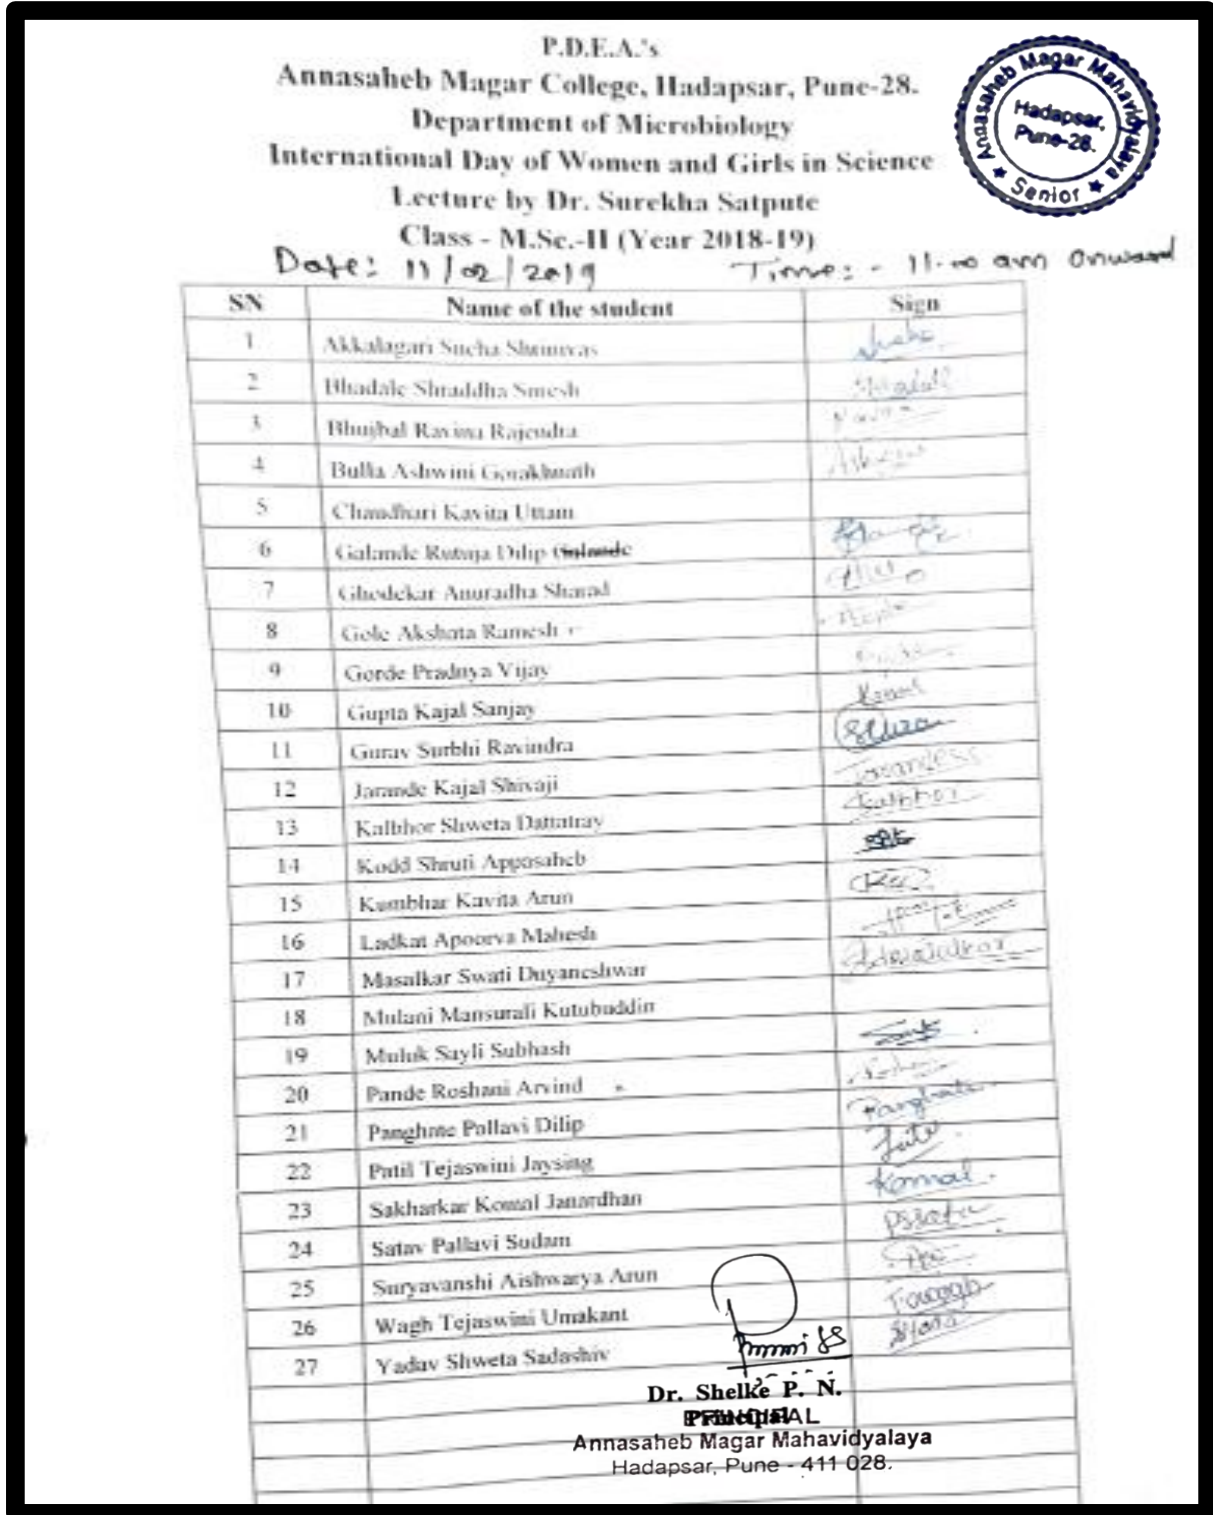 P.D.E.A.'s
Annasaheb Magar College, Hadapsar, Pune-28.
Department of Microbiology
International Day of Women and Girls in Science
Lecture by Dr. Surekha Satpute
Class - M.Sc.-II (Year 2018-19)
Annasaheb Magar Mahavidyalaya
Hadapsar,
Pune-28.
★ Senior ★
Date: 11/02/2019 Time: - 11.00 am onward
SN Name of the student Sign
1 Akkalagari Shrinivas
2 Bhadale Shraddha
3 Bhujbal Ravina Rajendra
4 Bulla Ashwini Gorakhnath
5 Chaudhari Kavita Uttam
6 Galande Rutuja Dilip Galande
7 Ghodekar Anuradha Sharad
8 Gole Akshata Ramesh
9 Gorde Pradnya Vijay
10 Gupta Kajal Sanjay Kajal
11 Gurav Surbhi Ravindra
12 Jarande Kajal Shivaji
13 Kalbhor Shweta Dattatray Kalbhor
14 Kodd Shruti Appasaheb
15 Kumbhar Kavita Arun
16 Ladkat Apoorva Mahesh
17 Masalkar Swati Dnyaneshwar
18 Mulani Mansurali Kutubuddin
19 Muluk Sayli Subhash
20 Pande Roshani Arvind
21 Panghate Pallavi Dilip Panghate
22 Patil Tejaswini Jaysing
23 Sakharkar Komal Janardhan Komal
24 Satav Pallavi Sudam
25 Suryavanshi Aishwarya Arun
26 Wagh Tejaswini Umakant
27 Yadav Shweta Sadashiv
Dr. Shelke P. N.
Principal
PRINCIPAL
Annasaheb Magar Mahavidyalaya
Hadapsar, Pune - 411 028.